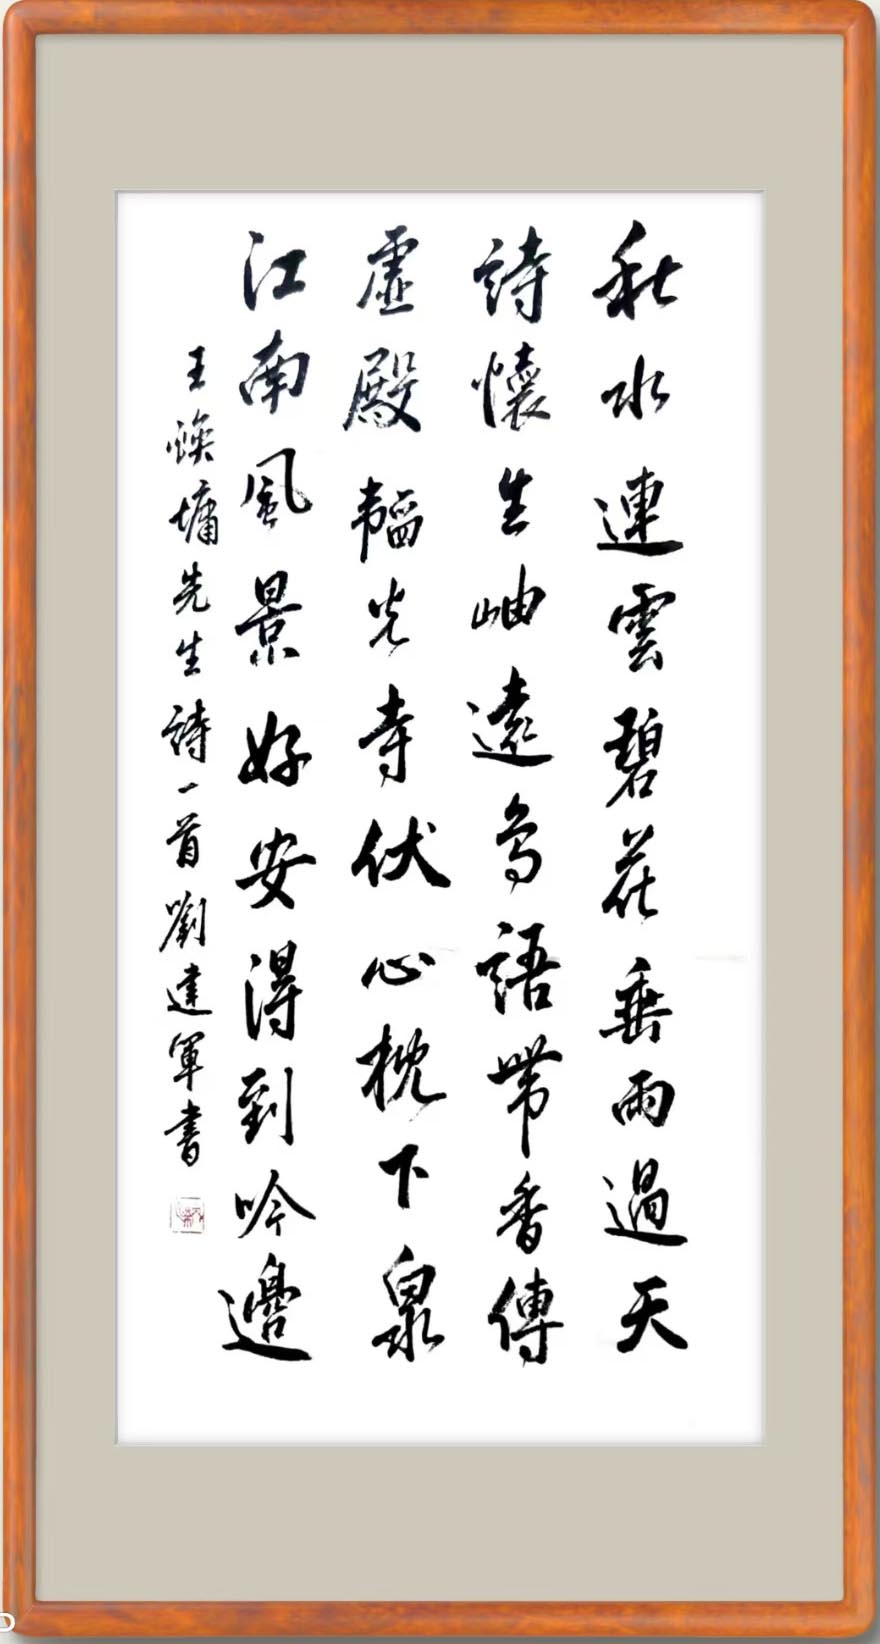 秋水連雲碧花垂雨過天
詩懷生岫遠鳥語帶香傳
虛殿韜光寺伏心枕下泉
江南風景好安得到吟邊
王焕墉先生詩一首劉建軍書